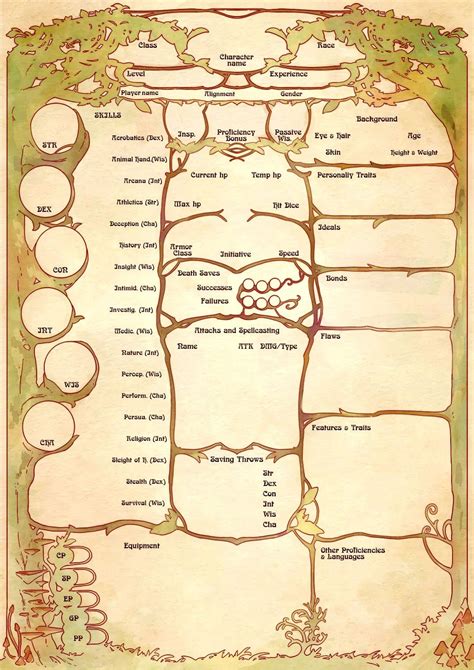 Class
Character
name
Race
Level
Experience
Player name
Alignment
Gender
SKILLS
STR
DEX
CON
INT
WIS
CHA
Acrobatics (Dex)
Animal Hand.(Wis)
Arcana (Int)
Athletics (Str)
Deception (Cha)
History (Int)
Insight (Wis)
Intimid. (Cha)
Investig. (Int)
Medic. (Wis)
Nature (Int)
Percep. (Wis)
Perform. (Cha)
Persua. (Cha)
Religion (Int)
Sleight of H. (Dex)
Stealth (Dex)
Survival (Wis)
Insp.
Proficiency
Bonus
Passive
Wis.
Current hp
Temp hp
Max hp
Hit Dice
Armor
Class
Initiative
Speed
Death Saves
Successes
Failures
Attacks and Spellcasting
Name
ATK
DMG/Type
Saving Throws
Str
Dex
Con
Int
Wis
Cha
Background
Eye & Hair
Age
Skin
Height & Weight
Personality Traits
Ideals
Bonds
Flaws
Features & Traits
Equipment
CP
SP
EP
GP
PP
Other Proficiencies
& Languages